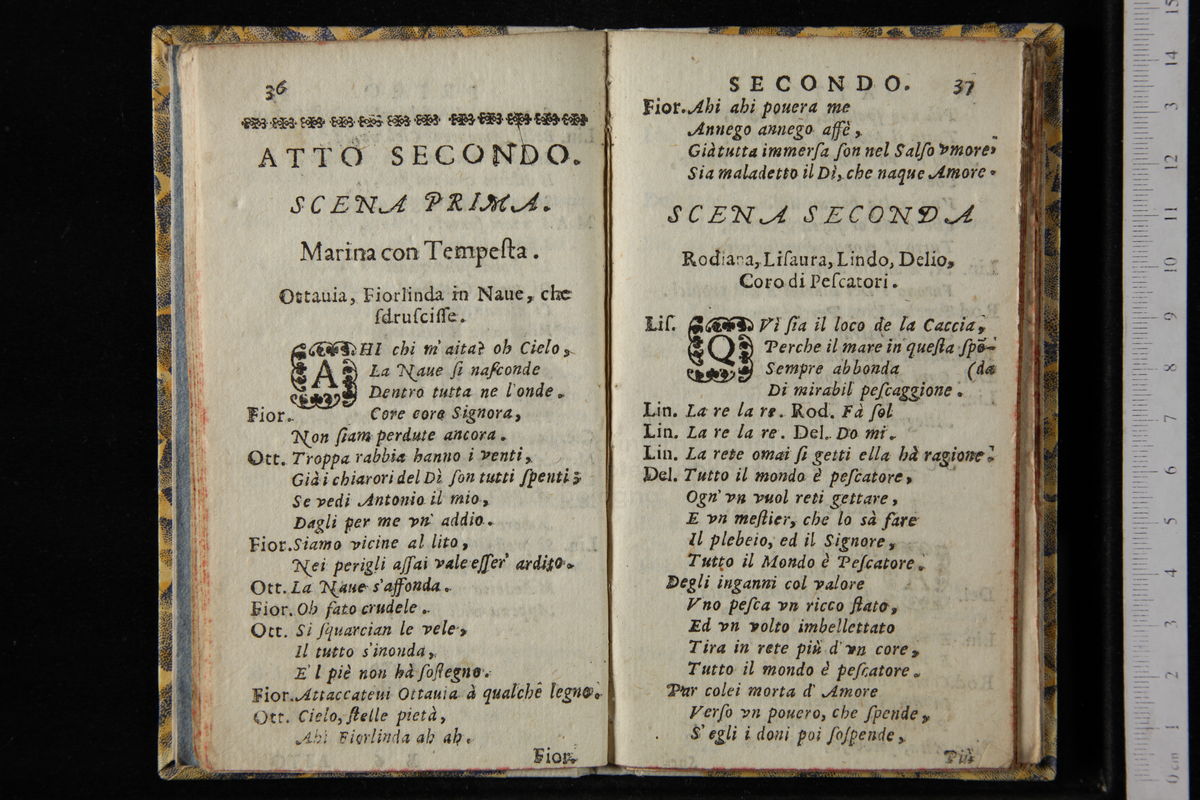 36
ATTO SECONDO.
SCENA PRIMA.
Marina con Tempeſta.
Ottauia, Fiorlinda in Naue, che
ſdruſciſſe.
AHI chi m'aita? oh Cielo,
La Naue ſi naſconde
Dentro tutta ne l'onde.
Fior. Core core Signora,
Non ſiam perdute ancora.
Ott. Troppa rabbia hanno i venti,
Già i chiarori del Dì ſon tutti ſpenti;
Se vedi Antonio il mio,
Dagli per me vn' addio.
Fior. Siamo vicine al lito,
Nei perigli aſſai vale eſſer' ardito.
Ott. La Naue s'affonda.
Fior. Oh fato crudele.
Ott. Si ſquarcian le vele,
Il tutto s'inonda,
E'l piè non hà ſoſtegno.
Fior. Attaccateui Ottauia à qualche legno.
Ott. Cielo, ſtelle pietà,
Ahi Fiorlinda ah ah.
Fior.
SECONDO. 37
Fior. Ahi ahi pouera me
Annego annego affè,
Già tutta immerſa ſon nel Salſo vmore
Sia maladetto il Dì, che naque Amore.
SCENA SECONDA
Rodiana, Liſaura, Lindo, Delio,
Coro di Peſcatori.
Liſ. QVì ſia il loco de la Caccia,
Perche il mare in queſta ſpõ-
Sempre abbonda (da
Di mirabil peſcaggione.
Lin. La re la re. Rod. Fà ſol
Lin. La re la re. Del. Do mi.
Lin. La rete omai ſi getti ella hà ragione.
Del. Tutto il mondo è peſcatore,
Ogn' vn vuol reti gettare,
E vn meſtier, che lo sà fare
Il plebeio, ed il Signore,
Tutto il Mondo è Peſcatore.
Degli inganni col valore
Vno peſca vn ricco ſtato,
Ed vn volto imbellettato
Tira in rete più d'vn core,
Tutto il mondo è peſcatore.
Pur colei morta d' Amore
Verſo vn pouero, che ſpende,
S' egli i doni poi ſoſpende,
Più